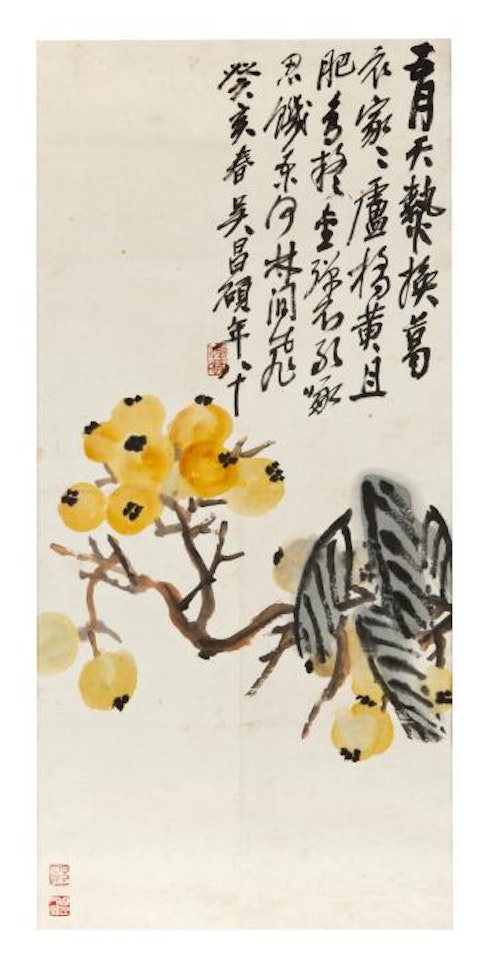 五月天熱換葛
衣家〻盧橘黃且
肥鳥疑金彈不敢啄
忍饑林間飛
癸亥春吳昌碩年八十